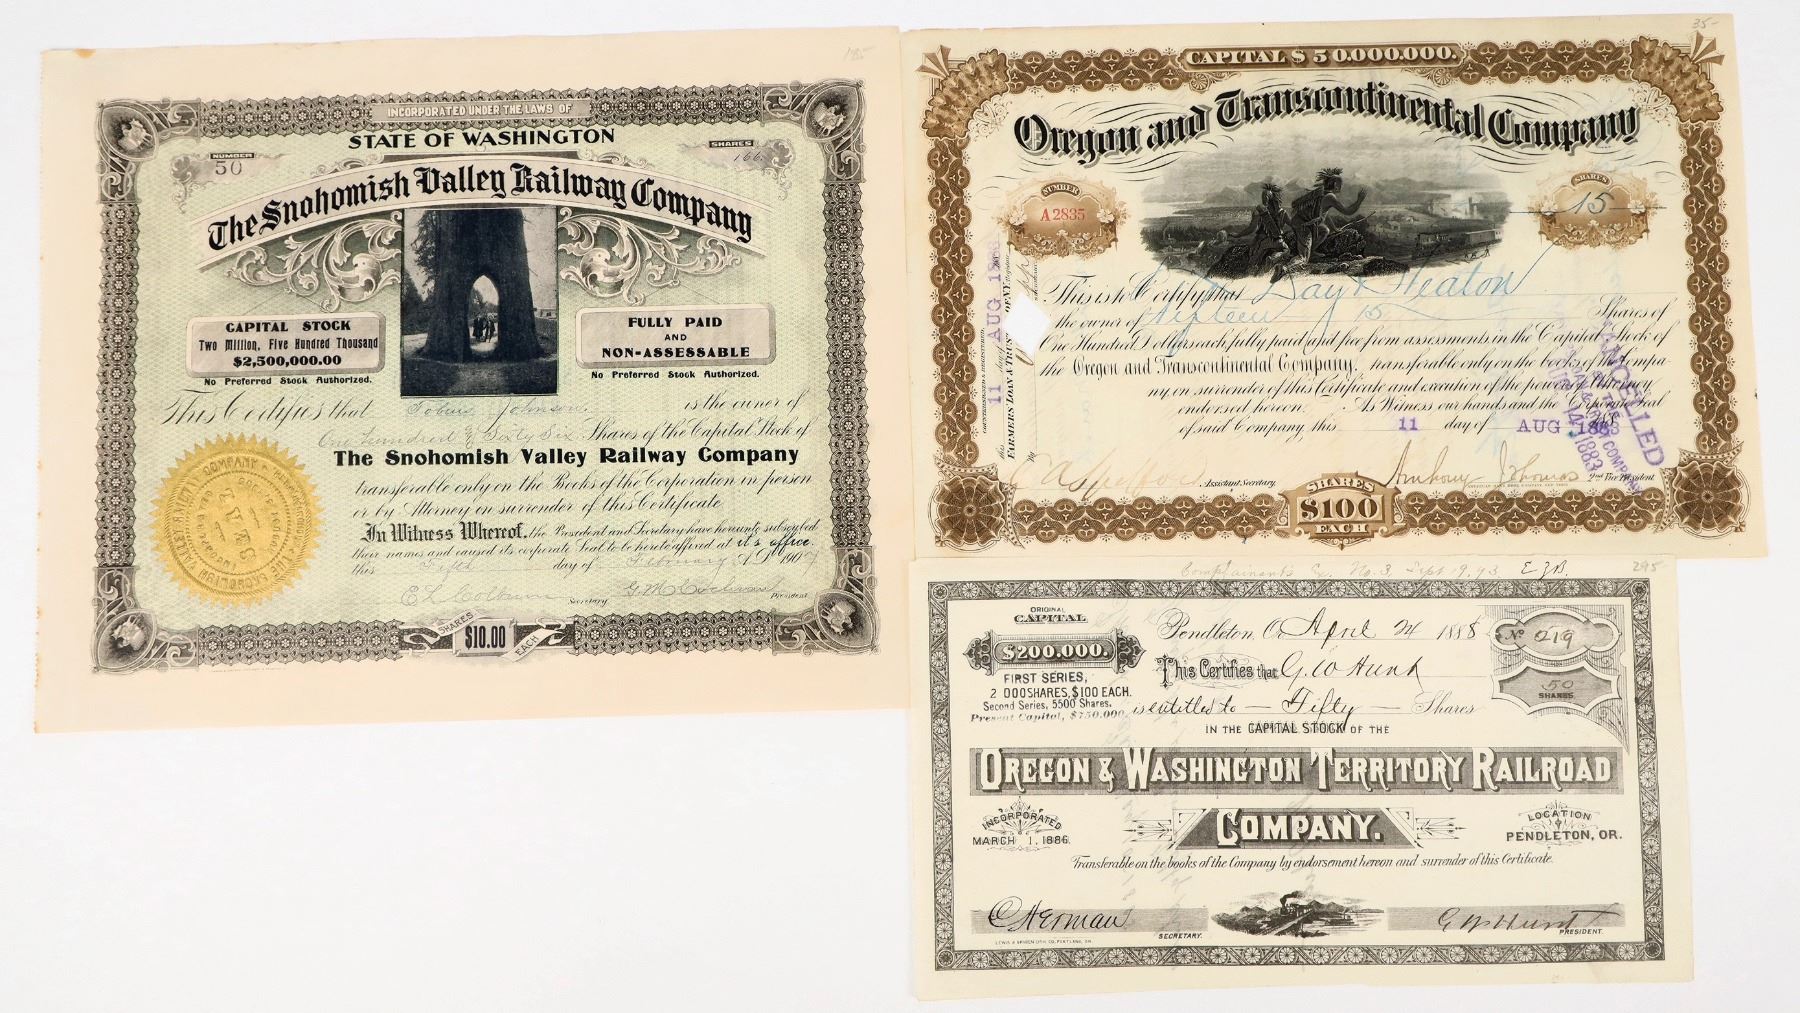 INCORPORATED UNDER THE LAWS OF
STATE OF WASHINGTON
NUMBER
50
SHARES
166
The Snohomish Valley Railway Company
CAPITAL STOCK
Two Million, Five Hundred Thousand
$2,500,000.00
No Preferred Stock Authorized.
FULLY PAID
AND
NON-ASSESSABLE
No Preferred Stock Authorized.
This Certifies that Tobias Johnson is the owner of
One hundred & Sixty Six Shares of the Capital Stock of
The Snohomish Valley Railway Company
transferable only on the Books of the Corporation in person
or by Attorney on surrender of this Certificate
In Witness Whereof, the President and Secretary have hereunto subscribed
their names and caused its corporate Seal to be hereto affixed at its office
this Fifth day of February A.D. 1907
E L Colburn Secretary President
SHARES $10.00 EACH
35-
CAPITAL $50.000.000.
Oregon and Transcontinental Company
NUMBER
A2835
SHARES
15
This is to Certify that Day & Heaton
the owner of Fifteen 15 Shares of
One Hundred Dollars each, fully paid and free from assessments in the Capital Stock of
the Oregon and Transcontinental Company, transferable only on the books of the Compa-
ny on surrender of this Certificate and execution of the power of Attorney
endorsed hereon. As Witness our hands and the Corporate Seal
of said Company, this 11 day of AUG 1883
Assistant Secretary. 2nd Vice President
SHARES
$100
EACH
COUNTERSIGNED & REGISTERED
this 11 day of AUG 188
CANCELLED
Complainants Ex. No. 3 Sept 19, 93 E.Z.B.
295-
ORIGINAL
CAPITAL
$200.000.
FIRST SERIES,
2 000 SHARES, $100 EACH.
Second Series, 5500 Shares.
Present Capital, $750,000.
Pendleton, Or. April 24 1888
No 219
50
SHARES
This Certifies that G. W. Hunt
is entitled to — Fifty — Shares
IN THE CAPITAL STOCK OF THE
OREGON & WASHINGTON TERRITORY RAILROAD
COMPANY.
INCORPORATED
MARCH 1, 1886.
LOCATION
PENDLETON, OR.
Transferable on the books of the Company by endorsement hereon and surrender of this Certificate.
SECRETARY.
G W Hunt
PRESIDENT.